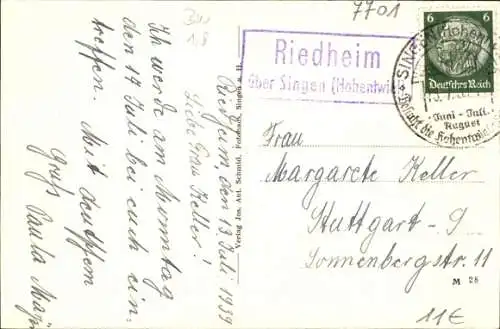 7701
Riedheim
über Singen (Hohentwiel)
6
Deutsches Reich
Juni - Juli
August
Riedheim den 13 Juli 1939
Liebe Frau Keller!
Ich werde am Montag
den 17 Juli bei euch ein-
treffen. Mit deutschem
Gruß Paula
Verlag Jos. Ant. Schmid, Fotohaus, Singen a. H.
Frau
Margarete Keller
Stuttgart - S
Sonnenbergstr. 11
M 28
11€